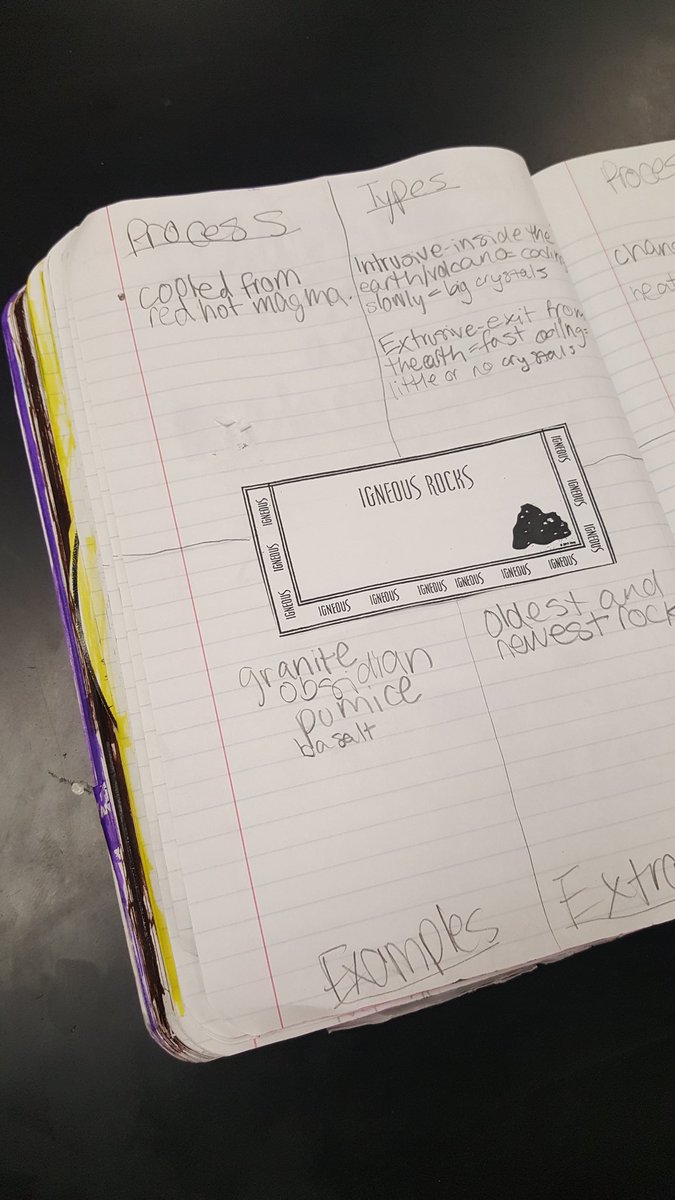 Process
cooled from
red hot magma.
Types
Intrusive-inside the
earth/volcano= coolin
slowly=big crystals
Extrusive-exit from
the earth=fast cooling=
little or no crystals
IGNEOUS ROCKS
IGNEOUS
IGNEOUS
IGNEOUS
IGNEOUS IGNEOUS IGNEOUS IGNEOUS IGNEOUS IGNEOUS
IGNEOUS
IGNEOUS
IGNEOUS
granite
obsidian
pumice
basalt
Examples
oldest and
newest rock
Extra
Proces
chan
heat